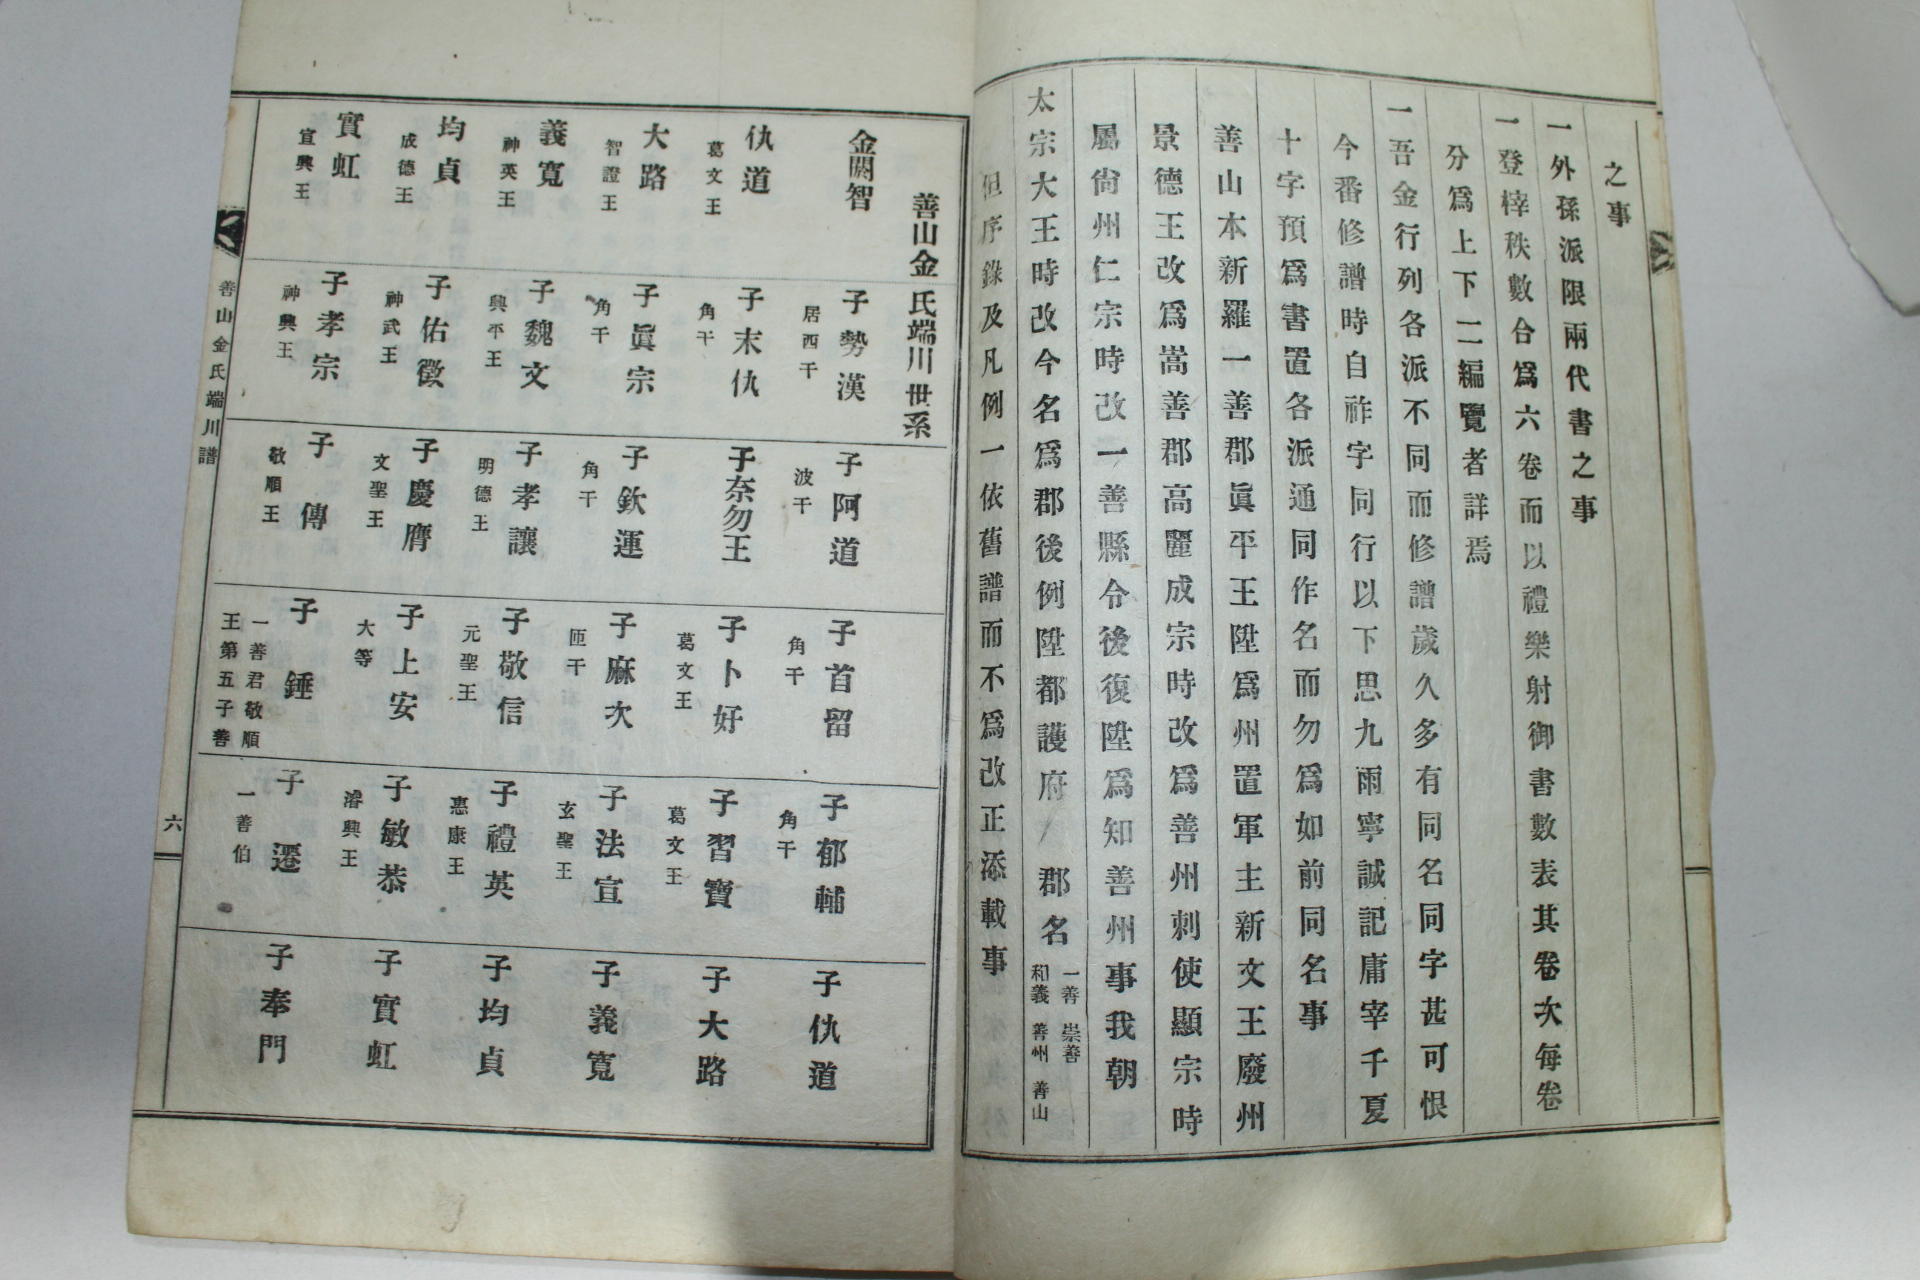 之事
一外孫派限兩代書之事
一登梓秩數合爲六卷而以禮樂射御書數表其卷次每卷
分爲上下二編覽者詳焉
一吾金行列各派不同而修譜歲久多有同名同字甚可恨
今番修譜時自祚字同行以下思九雨寧誠記庸宰千夏
十字預爲書置各派通同作名而勿爲如前同名事
善山本新羅一善郡眞平王陞爲州置軍主新文王廢州
景德王改爲嵩善郡高麗成宗時改爲善州刺使顯宗時
屬尙州仁宗時改一善縣令後復陞爲知善州事我朝
太宗大王時改今名爲郡後例陞都護府 郡名 一善 崇善
和義 善州 善山
但序錄及凡例一依舊譜而不爲改正添載事
善山金氏端川世系
金閼智
子勢漢
居西干
子阿道
波干
子首留
角干
子郁輔
角干
子仇道
仇道
葛文王
子末仇
角干
子奈勿王
子卜好
葛文王
子習寶
葛文王
子大路
大路
智證王
子眞宗
角干
子欽運
角干
子麻次
匝干
子法宣
玄聖王
子義寬
義寬
神英王
子魏文
興平王
子孝讓
明德王
子敬信
元聖王
子禮英
惠康王
子均貞
均貞
成德王
子佑徵
神武王
子慶膺
文聖王
子上安
大等
子敏恭
濬興王
子實虹
實虹
宣興王
子孝宗
神興王
子傳
敬順王
子錘
一善君敬順
王第五子善
子遷
一善伯
子奉門
善山金氏端川譜
六